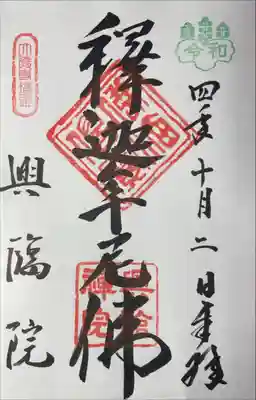 令和
四年十月二日奉拝
釋迦牟尼佛
興臨院